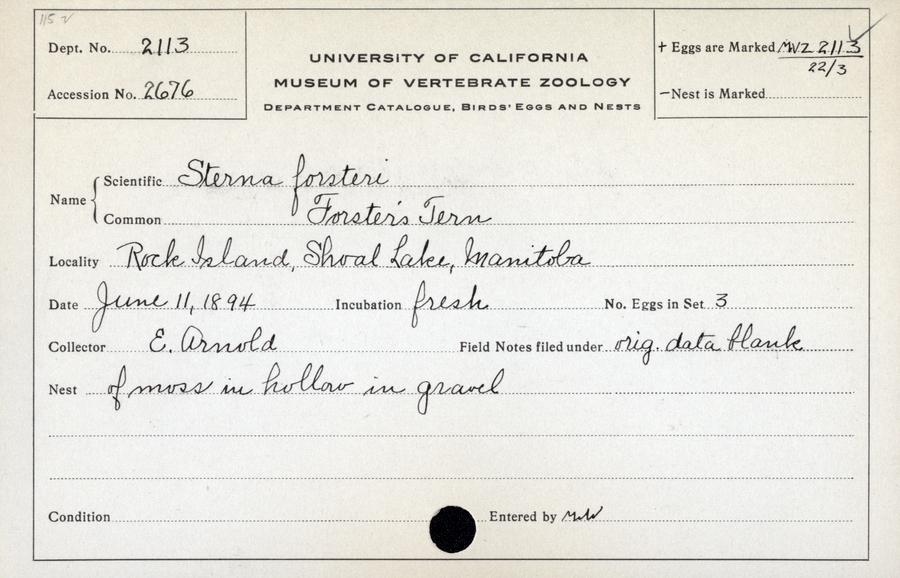 Dept. No. 2113
Accession No. 2676
UNIVERSITY OF CALIFORNIA
MUSEUM OF VERTEBRATE ZOOLOGY
DEPARTMENT CATALOGUE, BIRDS' EGGS AND NESTS
+ Eggs are Marked MVZ 2113
22/3
– Nest is Marked
Name
Scientific Sterna forsteri
Common Forster's Tern
Locality Rock Island, Shoal Lake, Manitoba
Date June 11, 1894 Incubation fresh No. Eggs in Set 3
Collector E. Arnold Field Notes filed under orig. data blank
Nest of moss in hollow in gravel
Condition Entered by